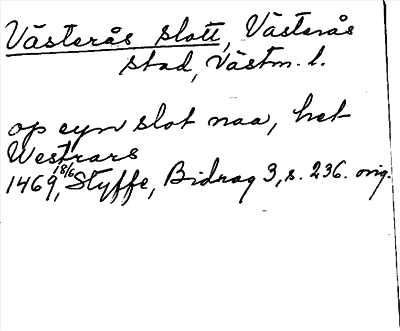 Västerås slott, Västerås
stad, Västm. l.
op eyn slot naa, het
Westrars
1469 18/6, Styffe, Bidrag 3, s. 236. orig.